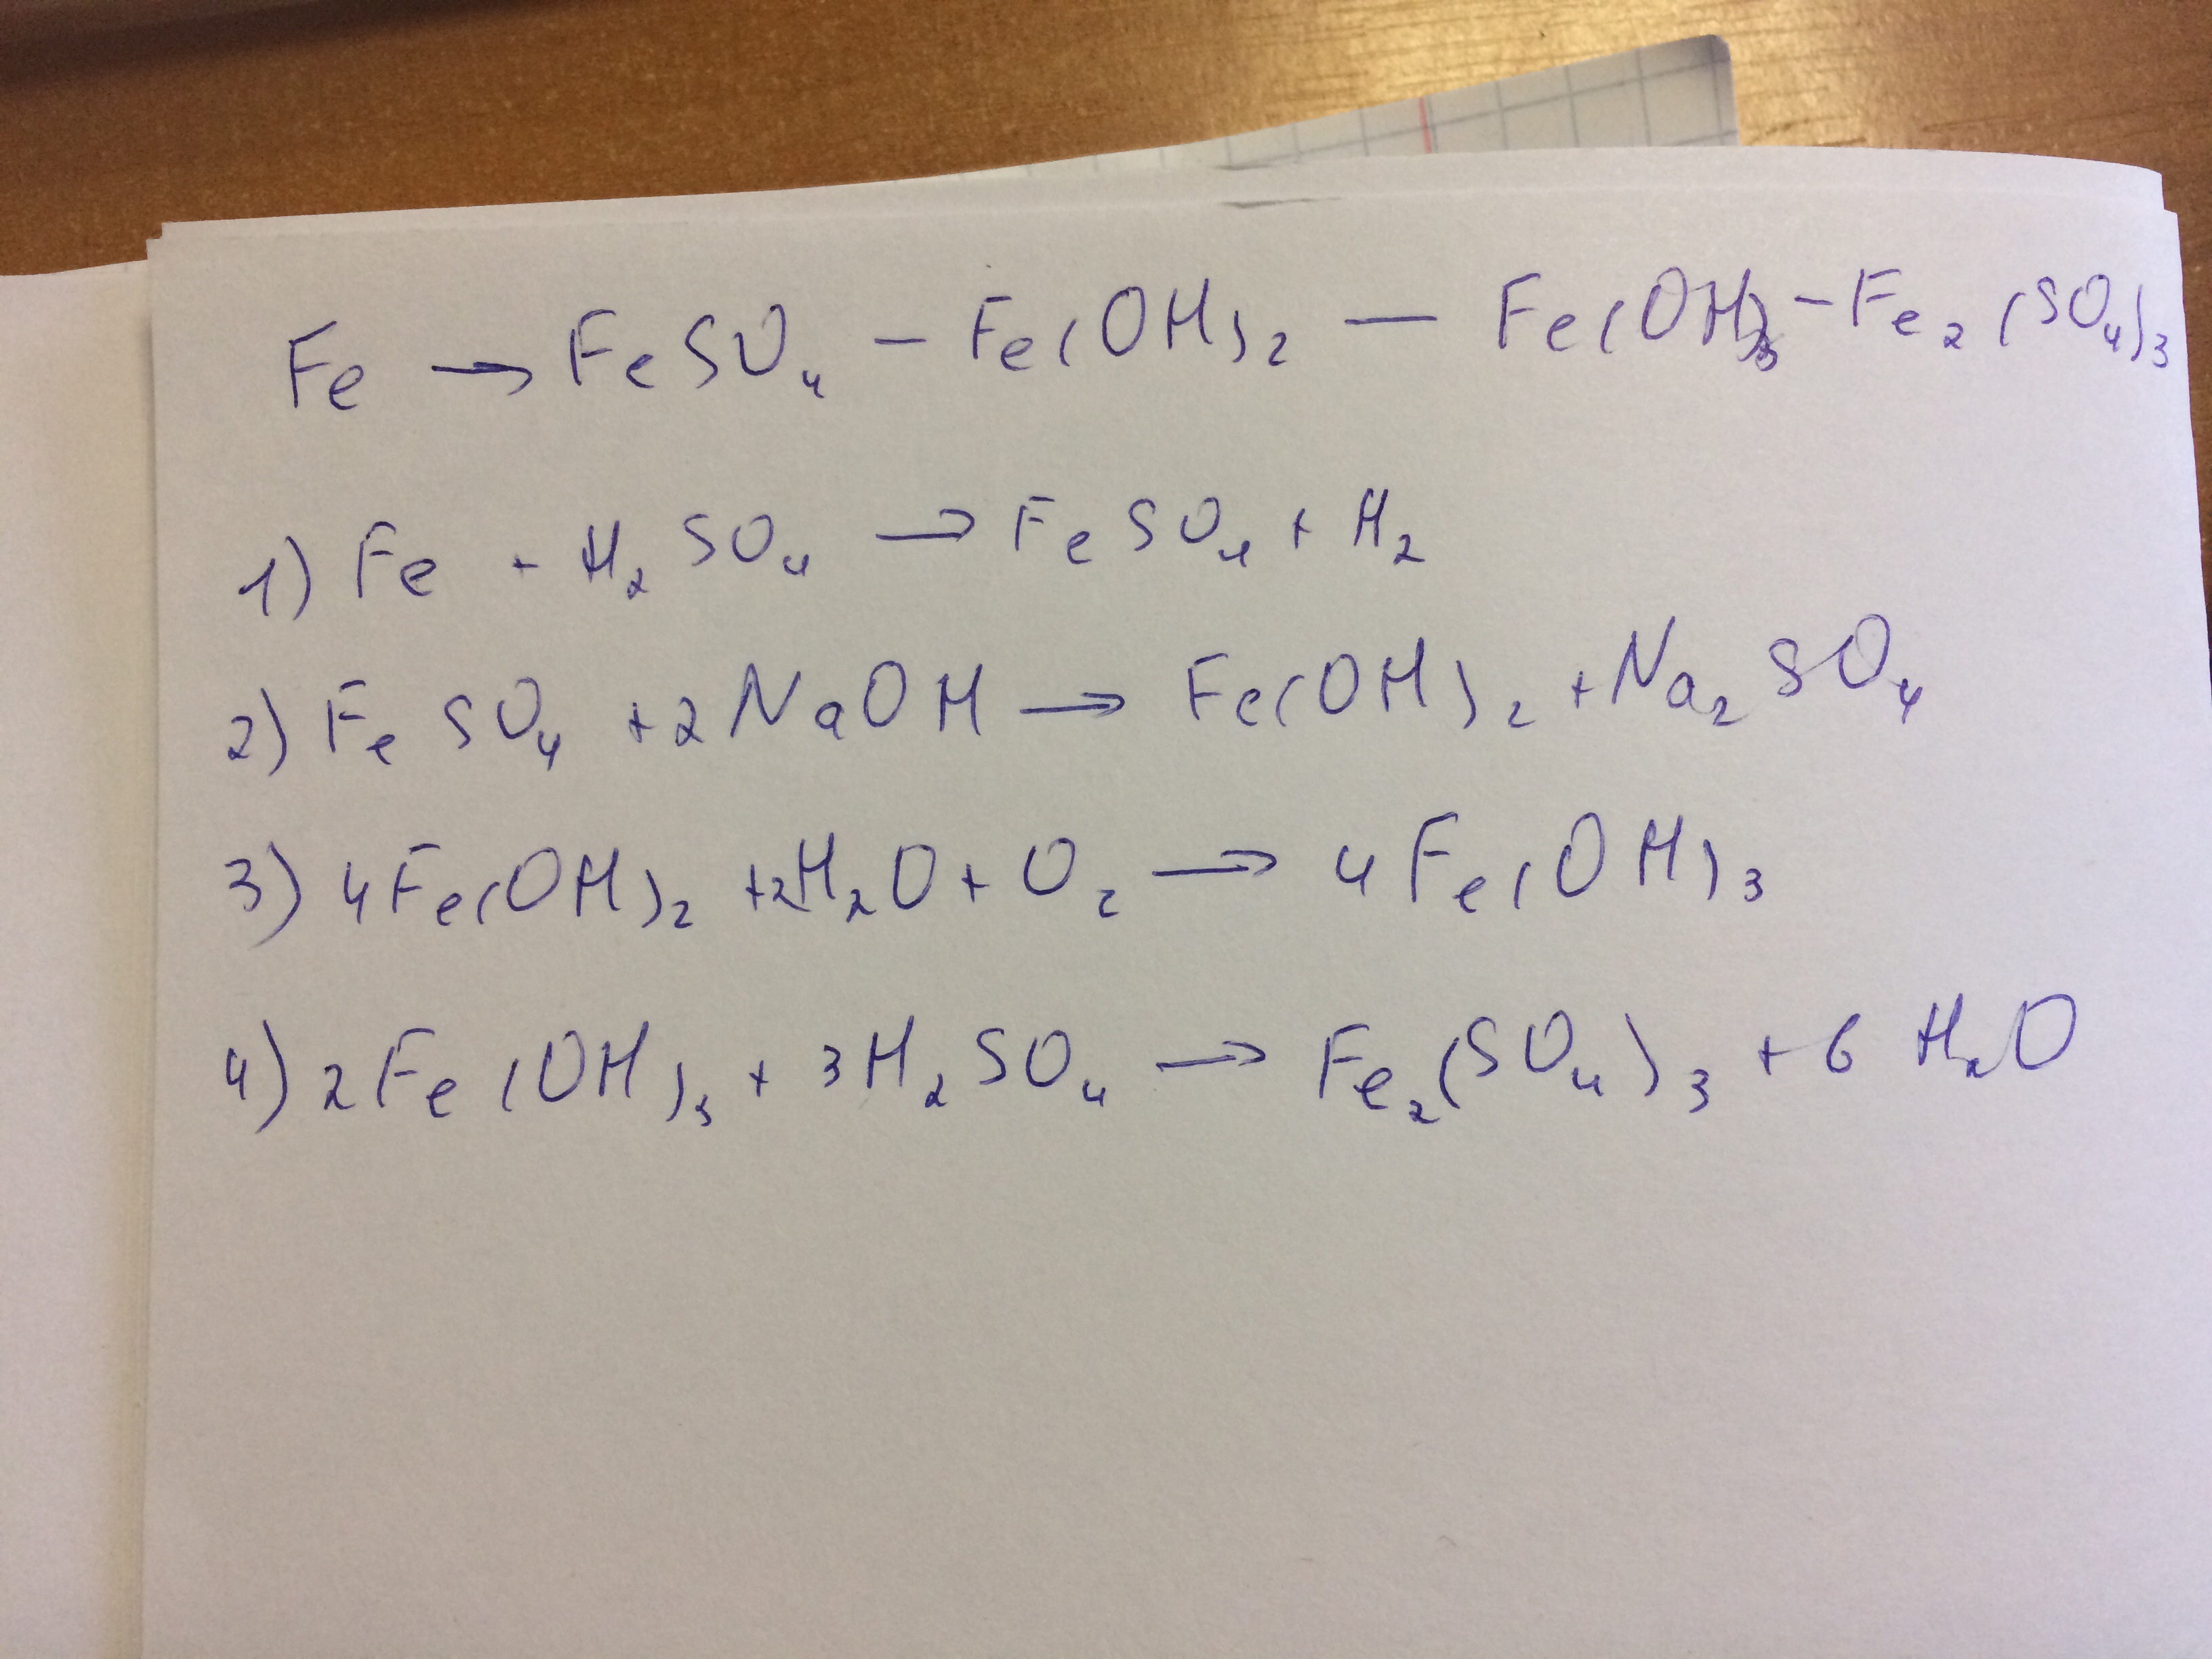 Fe → FeSO₄ – Fe(OH)₂ — Fe(OH)₃ – Fe₂(SO₄)₃
1) Fe + H₂SO₄ → FeSO₄ + H₂
2) FeSO₄ + 2NaOH → Fe(OH)₂ + Na₂SO₄
3) 4Fe(OH)₂ + 2H₂O + O₂ → 4Fe(OH)₃
4) 2Fe(OH)₃ + 3H₂SO₄ → Fe₂(SO₄)₃ + 6H₂O